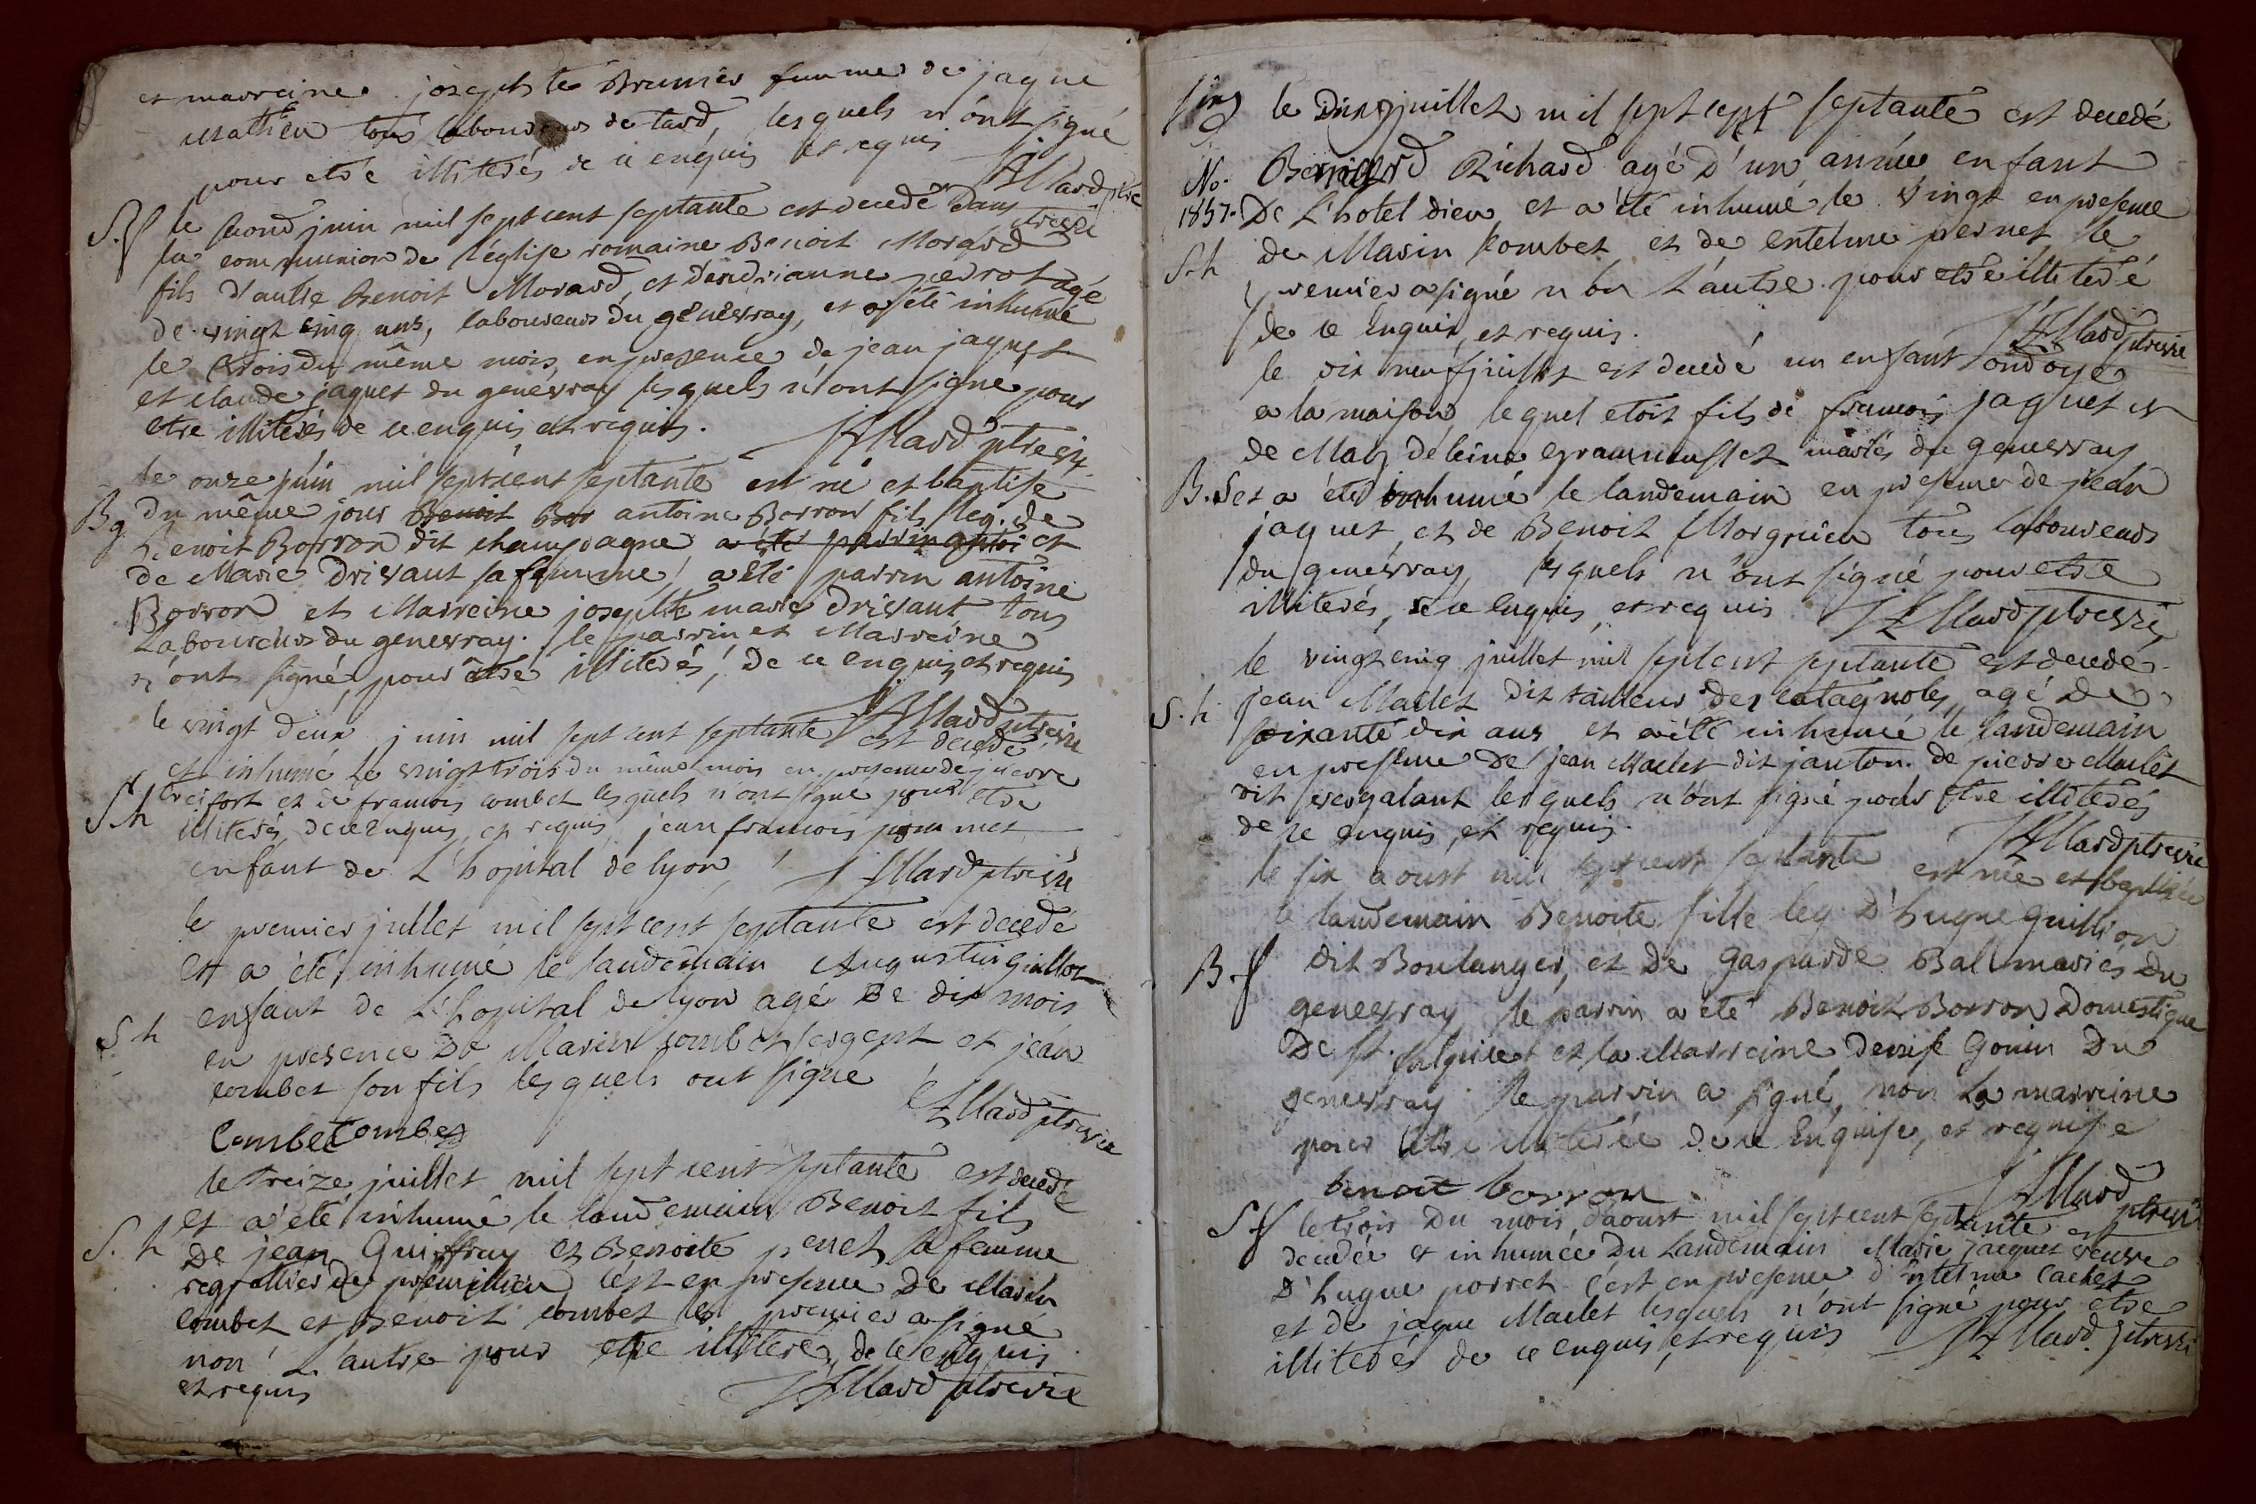 et marreine josephte Brunier femme de jaque
Mathieu tous laboureurs de tard, lesquels n'ont signé
pour etre illiterés de ce enquis et requis
Allard ptre
S.f le second juin mil sept cent septante est decedé dans
la communion de l'église romaine Benoit Morard
fils d'autre Benoit Morard, et d'andrianne perrot agé
de vingt cinq ans, laboureur du genevray, et a été inhumé
le trois du même mois en presence de jean jaquet
et claude jaquet du genevray lesquels n'ont signé pour
etre illiterés de ce enquis et requis.
Allard ptre
le onze juin mil sept cent septante est né et baptisé
B g du même jour Benoit Bor antoine Borron fils leg. de
Benoit Borron dit champagne a été parrin et
de Marie drivant sa femme, a été parrin antoine
Borron et Marreine josephte marie drivant tous
Laboureurs du genevray. le parrin et Marreine
n'ont signé pour être illiterés, de ce enquis et requis
Allard
le vingt deux juin mil sept cent septante est decedé
et inhumé le vingt trois du même mois en presence de pierre
S.h treifort et de francois combet lesquels n'ont signé pour etre
illiterés, de ce enquis, et requis jean francois pommet
enfant de L'hopital de lyon
Allard
le premier juillet mil sept cent septante est decedé
et a été inhumé le landemain Augustin Guillot
enfant de L'hopital de lyon agé de dix mois
S h en presence de Marin combet sergent et jean
combet son fils lesquels ont signé
Allard
Combet Combet
le treize juillet mil sept cent septante est decedé
et a été inhumé le landemain Benoit fils
S. h De jean Guiffray et Benoite penet sa femme
c'est en presence De Marin
combet et Benoit combet le premier a signé
non L'autre pour etre illiteré, de ce enquis
et requis
Allard
le Dix juillet mil sept cent septante est decedé
No. Bernard Richard agé d'un année enfant
1857. De L'hotel dieu et a été inhumé le vingt en presence
S.h de Marin combet et de entelme pernet le
premier a signé non L'autre pour etre illiteré
de ce enquis, et requis.
Allard
le dix neuf juillet est decedé un enfant ondoyé
a la maison, lequel etoit fils de francois jaquet et
de Magdeleine mariés du genevray
B.S et a été inhumé le landemain en presence de jean
jaquet, et de Benoit Morgnieu tous laboureurs
du genevray, lesquels n'ont signé pour etre
illiterés, de ce enquis, et requis
Allard
le vingt cinq juillet mil sept cent septante est decedé
S.h jean Maclet dit des catagnoles, agé de
soixante dix ans et a été inhumé le landemain
en presence de jean Maclet dit janton de pierre Maclet
dit vergalant lesquels n'ont signé pour etre illiterés
de ce enquis, et requis.
Allard
le six aoust mil sept cent septante est née et baptisée
le landemain Benoite fille leg. D'hugue Guillion
B.f dit Boulanger, et de Gasparde Bal mariés du
genevray le parrin a été Benoit Borron Domestique
De st. et la Marreine denise Gonin Du
genevray le parrin a signé, non La marreine
pour etre illiterée de ce Enquise, et requise
benoit borron
Allard
S f le trois Du mois d'aoust mil sept cent septante est
decedée et inhumée Du Landemain Marie jacquet veuve
D'hugue porret c'est en presence d'entelme Cachet
et de jaque Maclet lesquels n'ont signé pour etre
illiterés de ce enquis, et requis
Allard